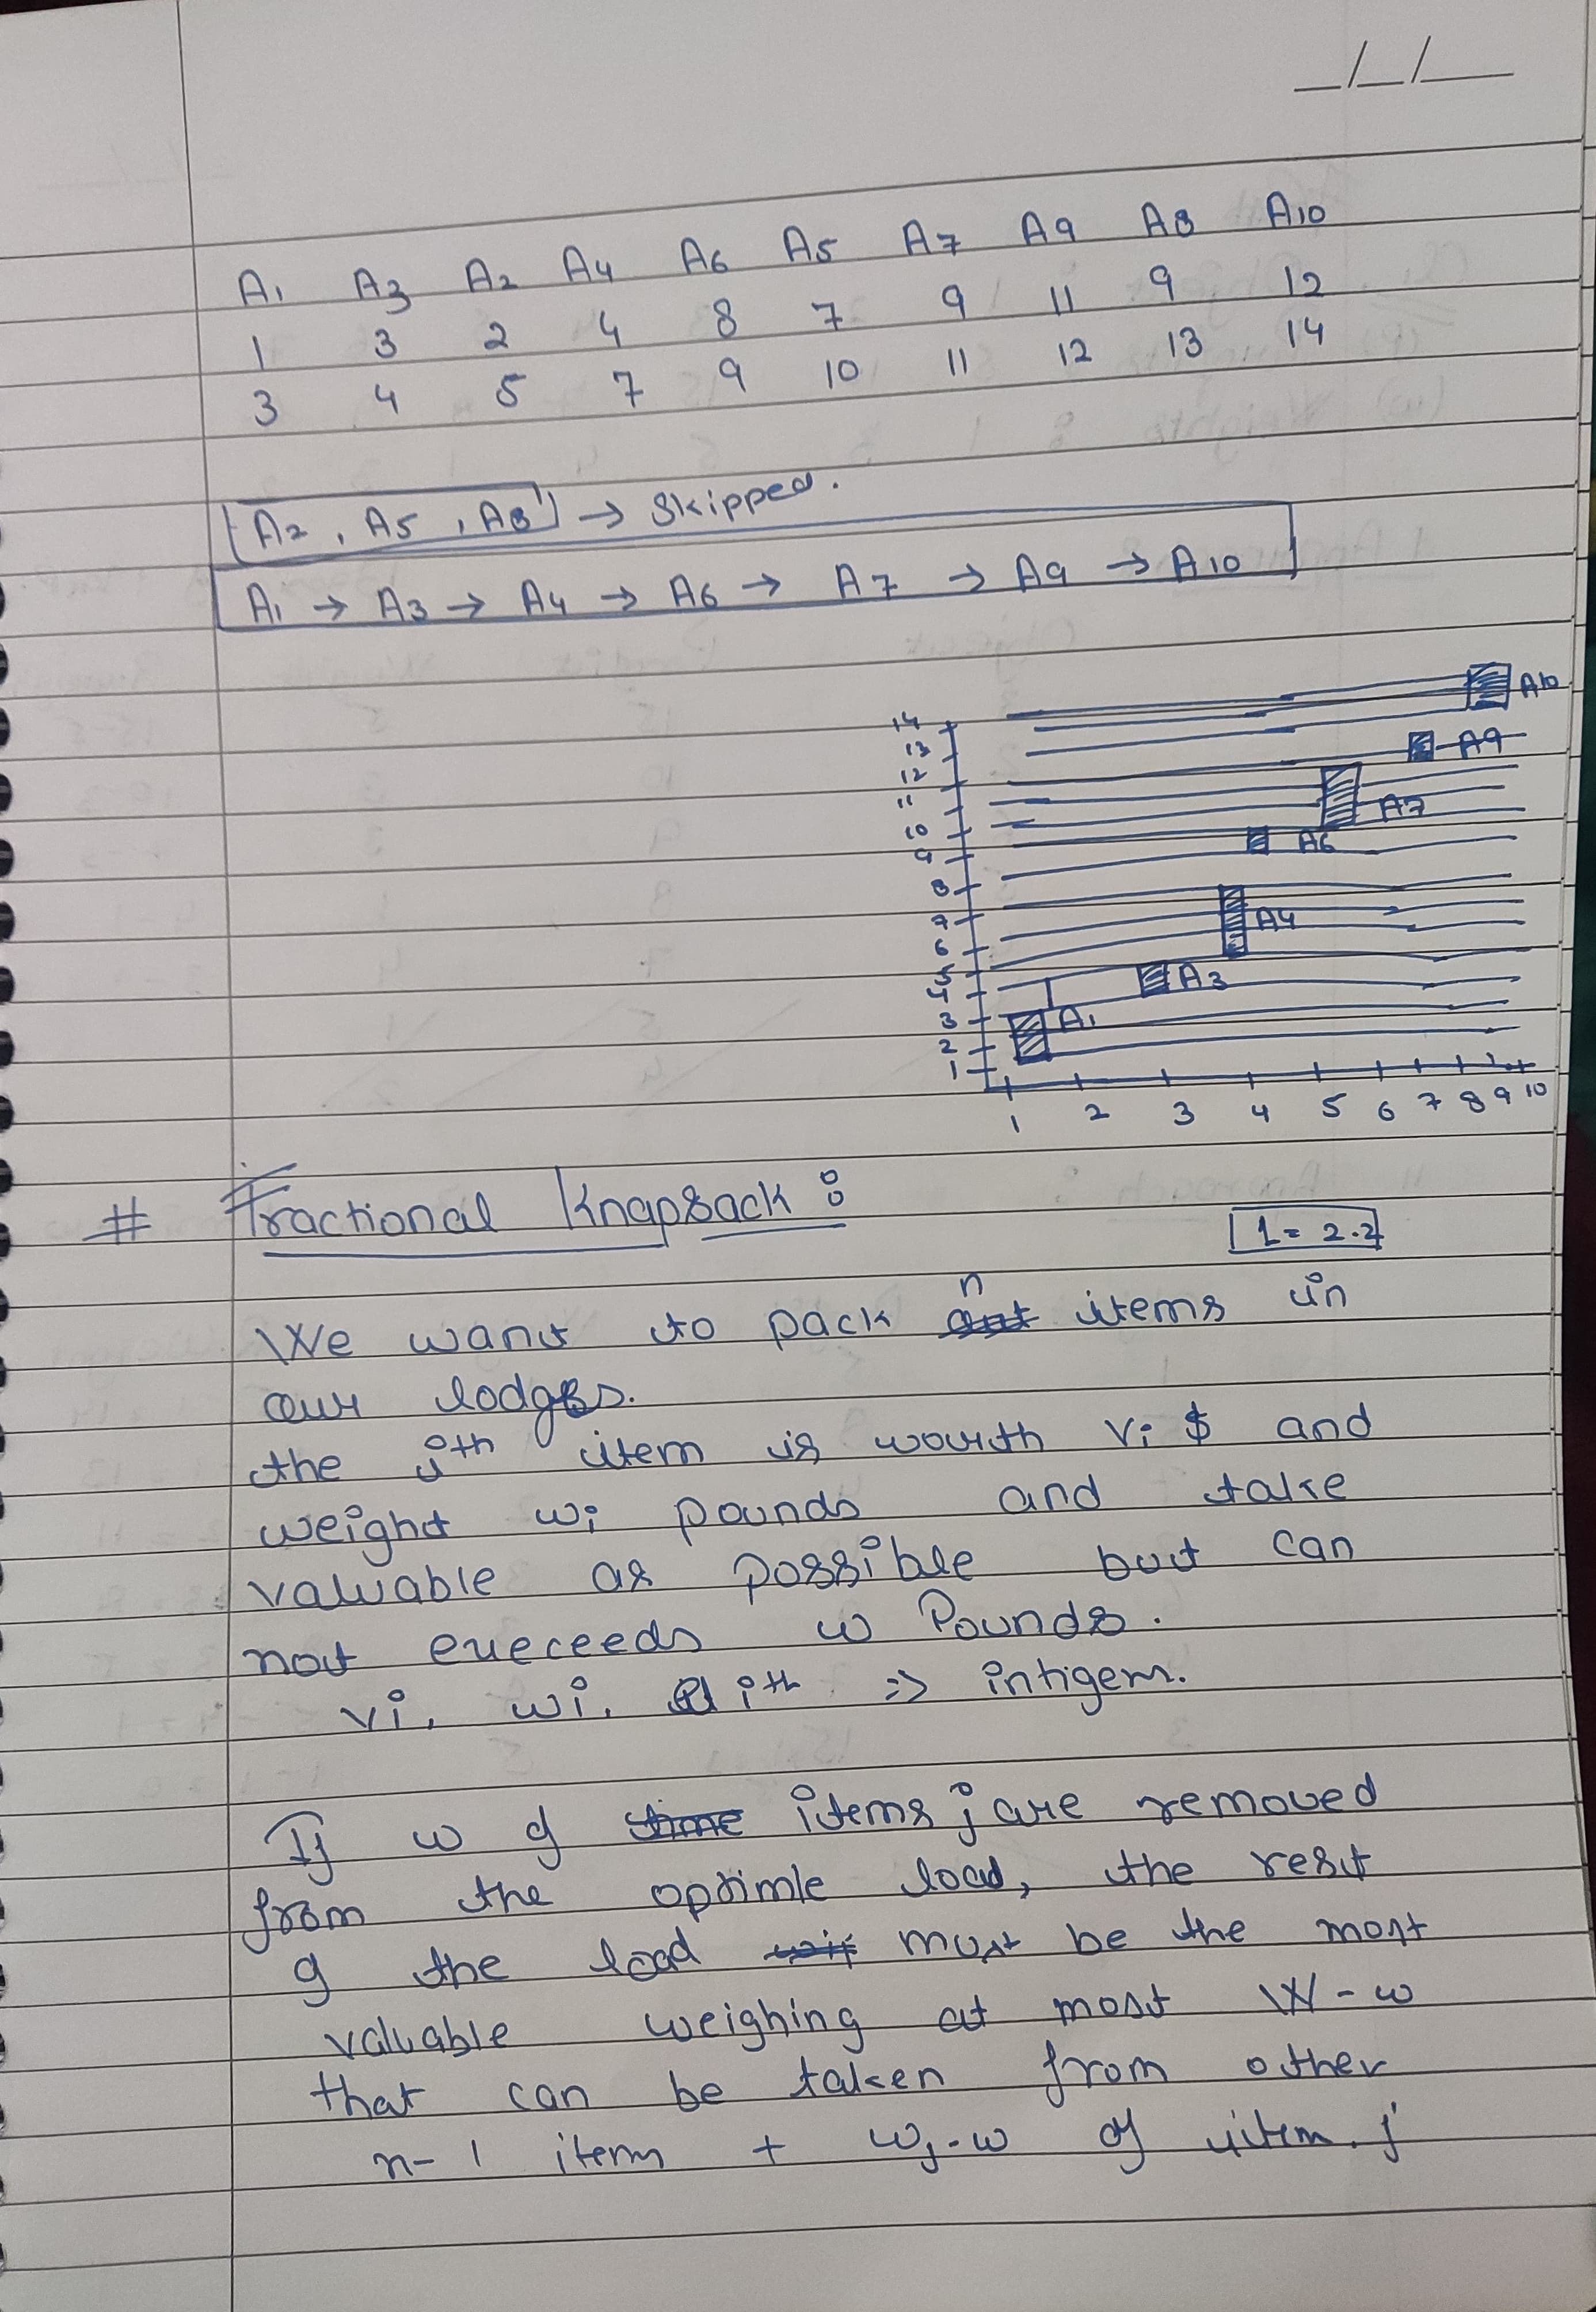 _/_/__
A1 A3 A2 A4 A6 A5 A7 A9 A8 A10
1 3 2 4 8 7 9 11 9 12
3 4 5 7 9 10 11 12 13 14
A2, A5, A8 → Skipped.
A1 → A3 → A4 → A6 → A7 → A9 → A10
14 A10
13 A9
12
11 A7
10 A6
9
8
7 A4
6
5
4 A3
3 A1
2
1
1 2 3 4 5 6 7 8 9 10
# Fractional Knapsack :
1 = 2.2
We want to pack n items in
our lodges.
the ith item is worth vi $ and
weight wi pounds and take
valuable as possible but can
not execeeds w Pounds.
vi, wi, ith => intigem.
If w of items j are removed
from the optimle load, the rest
of the load must be the most
valuable weighing at most W-w
that can be taken from other
n-1 item + wj-w of item j